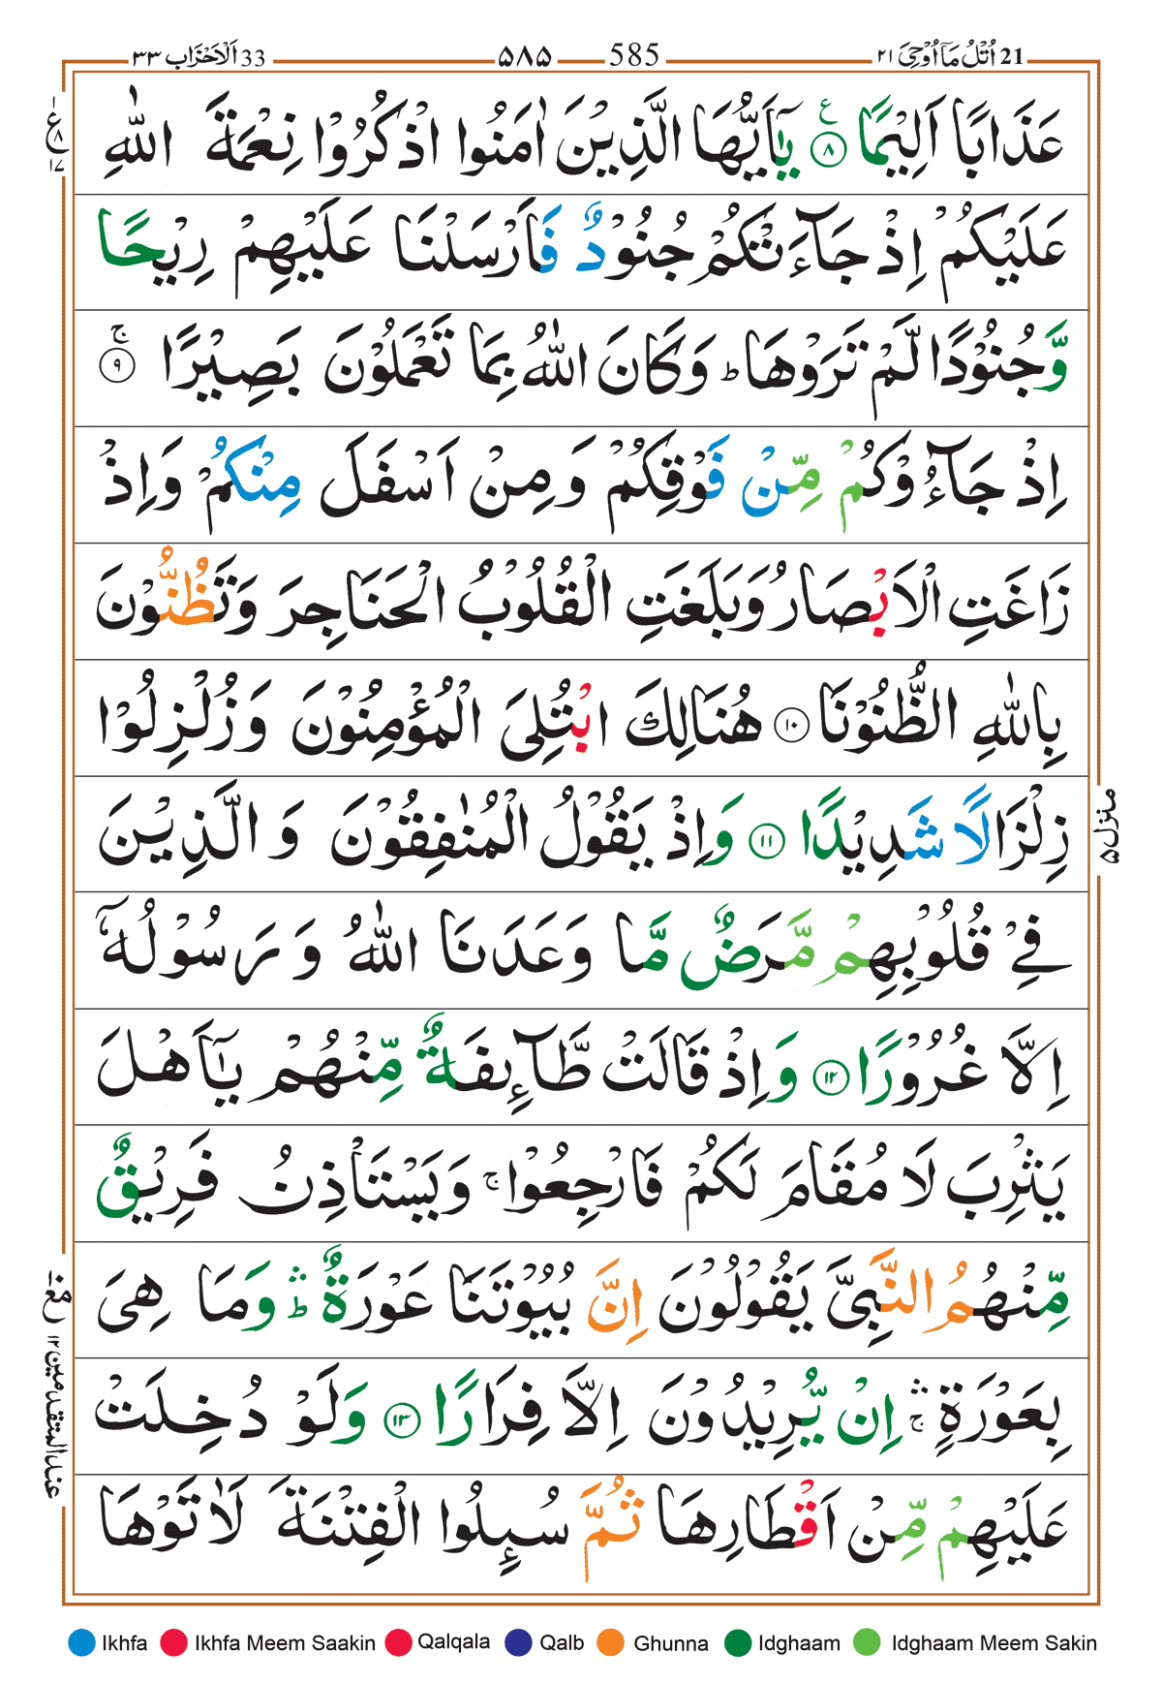 21 اُتْلُ مَاۤ اُوْحِیَ ۲۱
585 ۵۸۵
33 اَلْاَحْزَاب ۳۳
عَذَابًا اَلِیْمًا ۸ ع یٰۤاَیُّهَا الَّذِیْنَ اٰمَنُوا اذْكُرُوْا نِعْمَةَ اللّٰهِ
عَلَیْكُمْ اِذْ جَآءَتْكُمْ جُنُوْدٌ فَاَرْسَلْنَا عَلَیْهِمْ رِیْحًا
وَّجُنُوْدًا لَّمْ تَرَوْهَا ؕ وَكَانَ اللّٰهُ بِمَا تَعْمَلُوْنَ بَصِیْرًا ۚ ۹
اِذْ جَآءُوْكُمْ مِّنْ فَوْقِكُمْ وَمِنْ اَسْفَلَ مِنْكُمْ وَاِذْ
زَاغَتِ الْاَبْصَارُ وَبَلَغَتِ الْقُلُوْبُ الْحَنَاجِرَ وَتَظُنُّوْنَ
بِاللّٰهِ الظُّنُوْنَا ۱۰ هُنَالِكَ ابْتُلِیَ الْمُؤْمِنُوْنَ وَزُلْزِلُوْا
زِلْزَالًا شَدِیْدًا ۱۱ وَاِذْ یَقُوْلُ الْمُنٰفِقُوْنَ وَالَّذِیْنَ
فِیْ قُلُوْبِهِمْ مَّرَضٌ مَّا وَعَدَنَا اللّٰهُ وَرَسُوْلُهٗۤ
اِلَّا غُرُوْرًا ۱۲ وَاِذْ قَالَتْ طَّآئِفَةٌ مِّنْهُمْ یٰۤاَهْلَ
یَثْرِبَ لَا مُقَامَ لَكُمْ فَارْجِعُوْا ۚ وَیَسْتَاْذِنُ فَرِیْقٌ
مِّنْهُمُ النَّبِیَّ یَقُوْلُوْنَ اِنَّ بُیُوْتَنَا عَوْرَةٌ ۛؕ وَمَا هِیَ
بِعَوْرَةٍ ۛۚ اِنْ یُّرِیْدُوْنَ اِلَّا فِرَارًا ۱۳ وَلَوْ دُخِلَتْ
عَلَیْهِمْ مِّنْ اَقْطَارِهَا ثُمَّ سُىِٕلُوا الْفِتْنَةَ لَاٰتَوْهَا
منزل ۵
عند المتقدمین ۱۲
Ikhfa Ikhfa Meem Saakin Qalqala Qalb Ghunna Idghaam Idghaam Meem Sakin